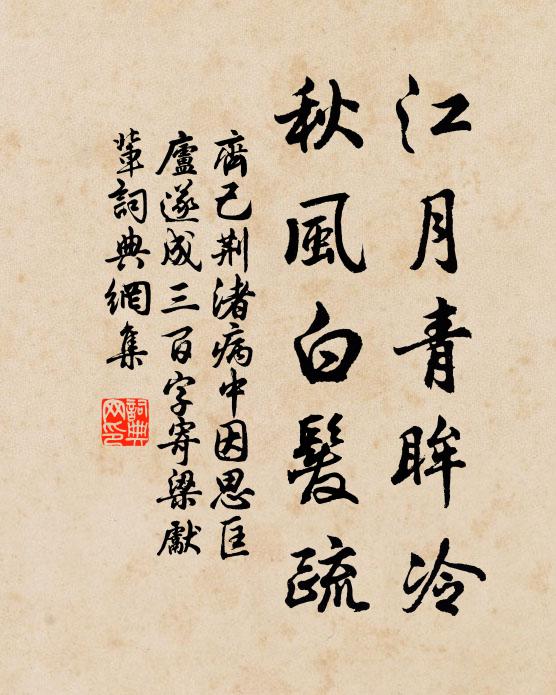 江月青眸冷
秋風白髮疏
齊己荆渚病中因思匡
廬遂成三百字寄梁獻
輩詞典網集
詞典
网印